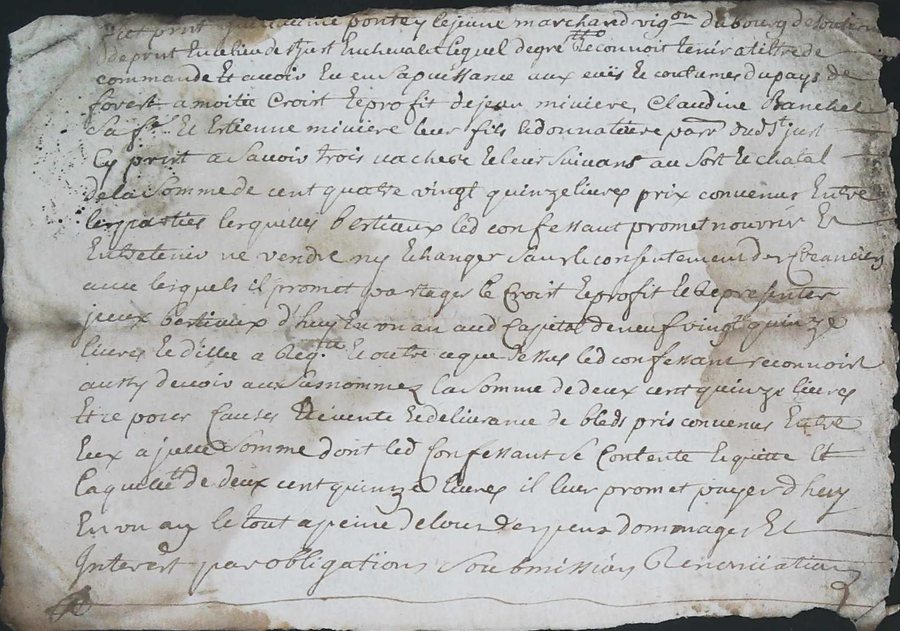 prnt pontey lejeune marchand vig.on du bourg de
prnt En chevalet lequel de gre reconnoit tenir a tiltre de
commande Et avoir Eu en sa puissance aux eües Et coutumes du pays de
forest a moitie Croist Et profit de jean miviere, Claudine Banchet
sa f. Et Estienne miviere leur fils donnataire par dud. st just
Cy prnt a savoir trois vaches Et leur suivans au sort Et chatal
de la somme de cent quatre vingt quinze livres prix convenus Entre
les parties lesquelles bestiaux led confessant promet nourrir Et
Entretenir ne vendre ny Echanger sans le consentement des Creanciers
avec lesquels il promet partager le Croist Et profit Et Representer
jceux bestiaux d'huy En un an aud Capital de neuf vingt quinze
livres Et a Req.te Et outre ce que dessus led confessant reconnoist
aussy devoir aux susnommez la somme de deux cent quinze livres
Et ce pour Causes Et vente Et delivrance de bleds pris convenus Entre
Eux a jcelle somme dont led Confessant se Contente Et quitte Et
laquelle de deux cent quinze livres il leur promet payer d'huy
En un an le tout a peine de tous despens dommages Et
Interest par obligations soubmissions Renonciations